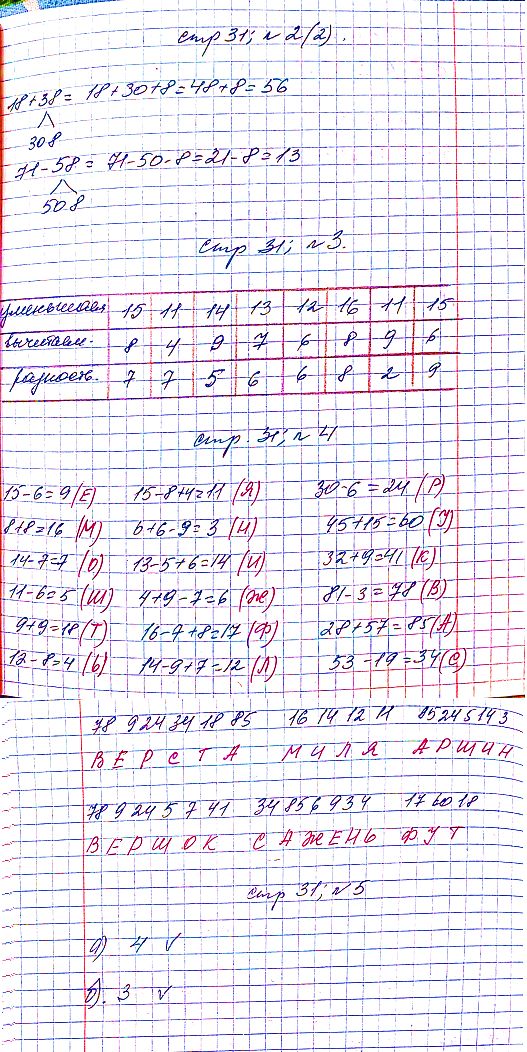 стр 31; № 2(2).
18+38= 18+30+8=48+8=56
30 8
71-58= 71-50-8=21-8=13
50 8
стр 31; № 3.
уменьшаем 15 11 14 13 12 16 11 15
вычитаем. 8 4 9 7 6 8 9 6
разность. 7 7 5 6 6 8 2 9
стр 31; № 4
15-6=9(Е) 15-8+4=11 (Я) 30-6=24 (Р)
8+8=16 (М) 6+6-9=3 (Н) 45+15=60 (У)
14-7=7 (О) 13-5+6=14 (И) 32+9=41 (К)
11-6=5 (Ш) 4+9-7=6 (Ж) 81-3=78 (В)
9+9=18(Т) 16-7+8=17 (Ф) 28+57=85(А)
12-8=4 (Ь) 14-9+7=12 (Л) 53-19=34(С)
78 9 24 34 18 85 16 14 12 11 85 24 5 14 3
ВЕРСТА МИЛЯ АРШИН
78 9 24 5 7 41 34 85 6 9 3 4 17 60 18
ВЕРШОК САЖЕНЬ ФУТ
стр 31; № 5
а) 4 V
б). 3 V